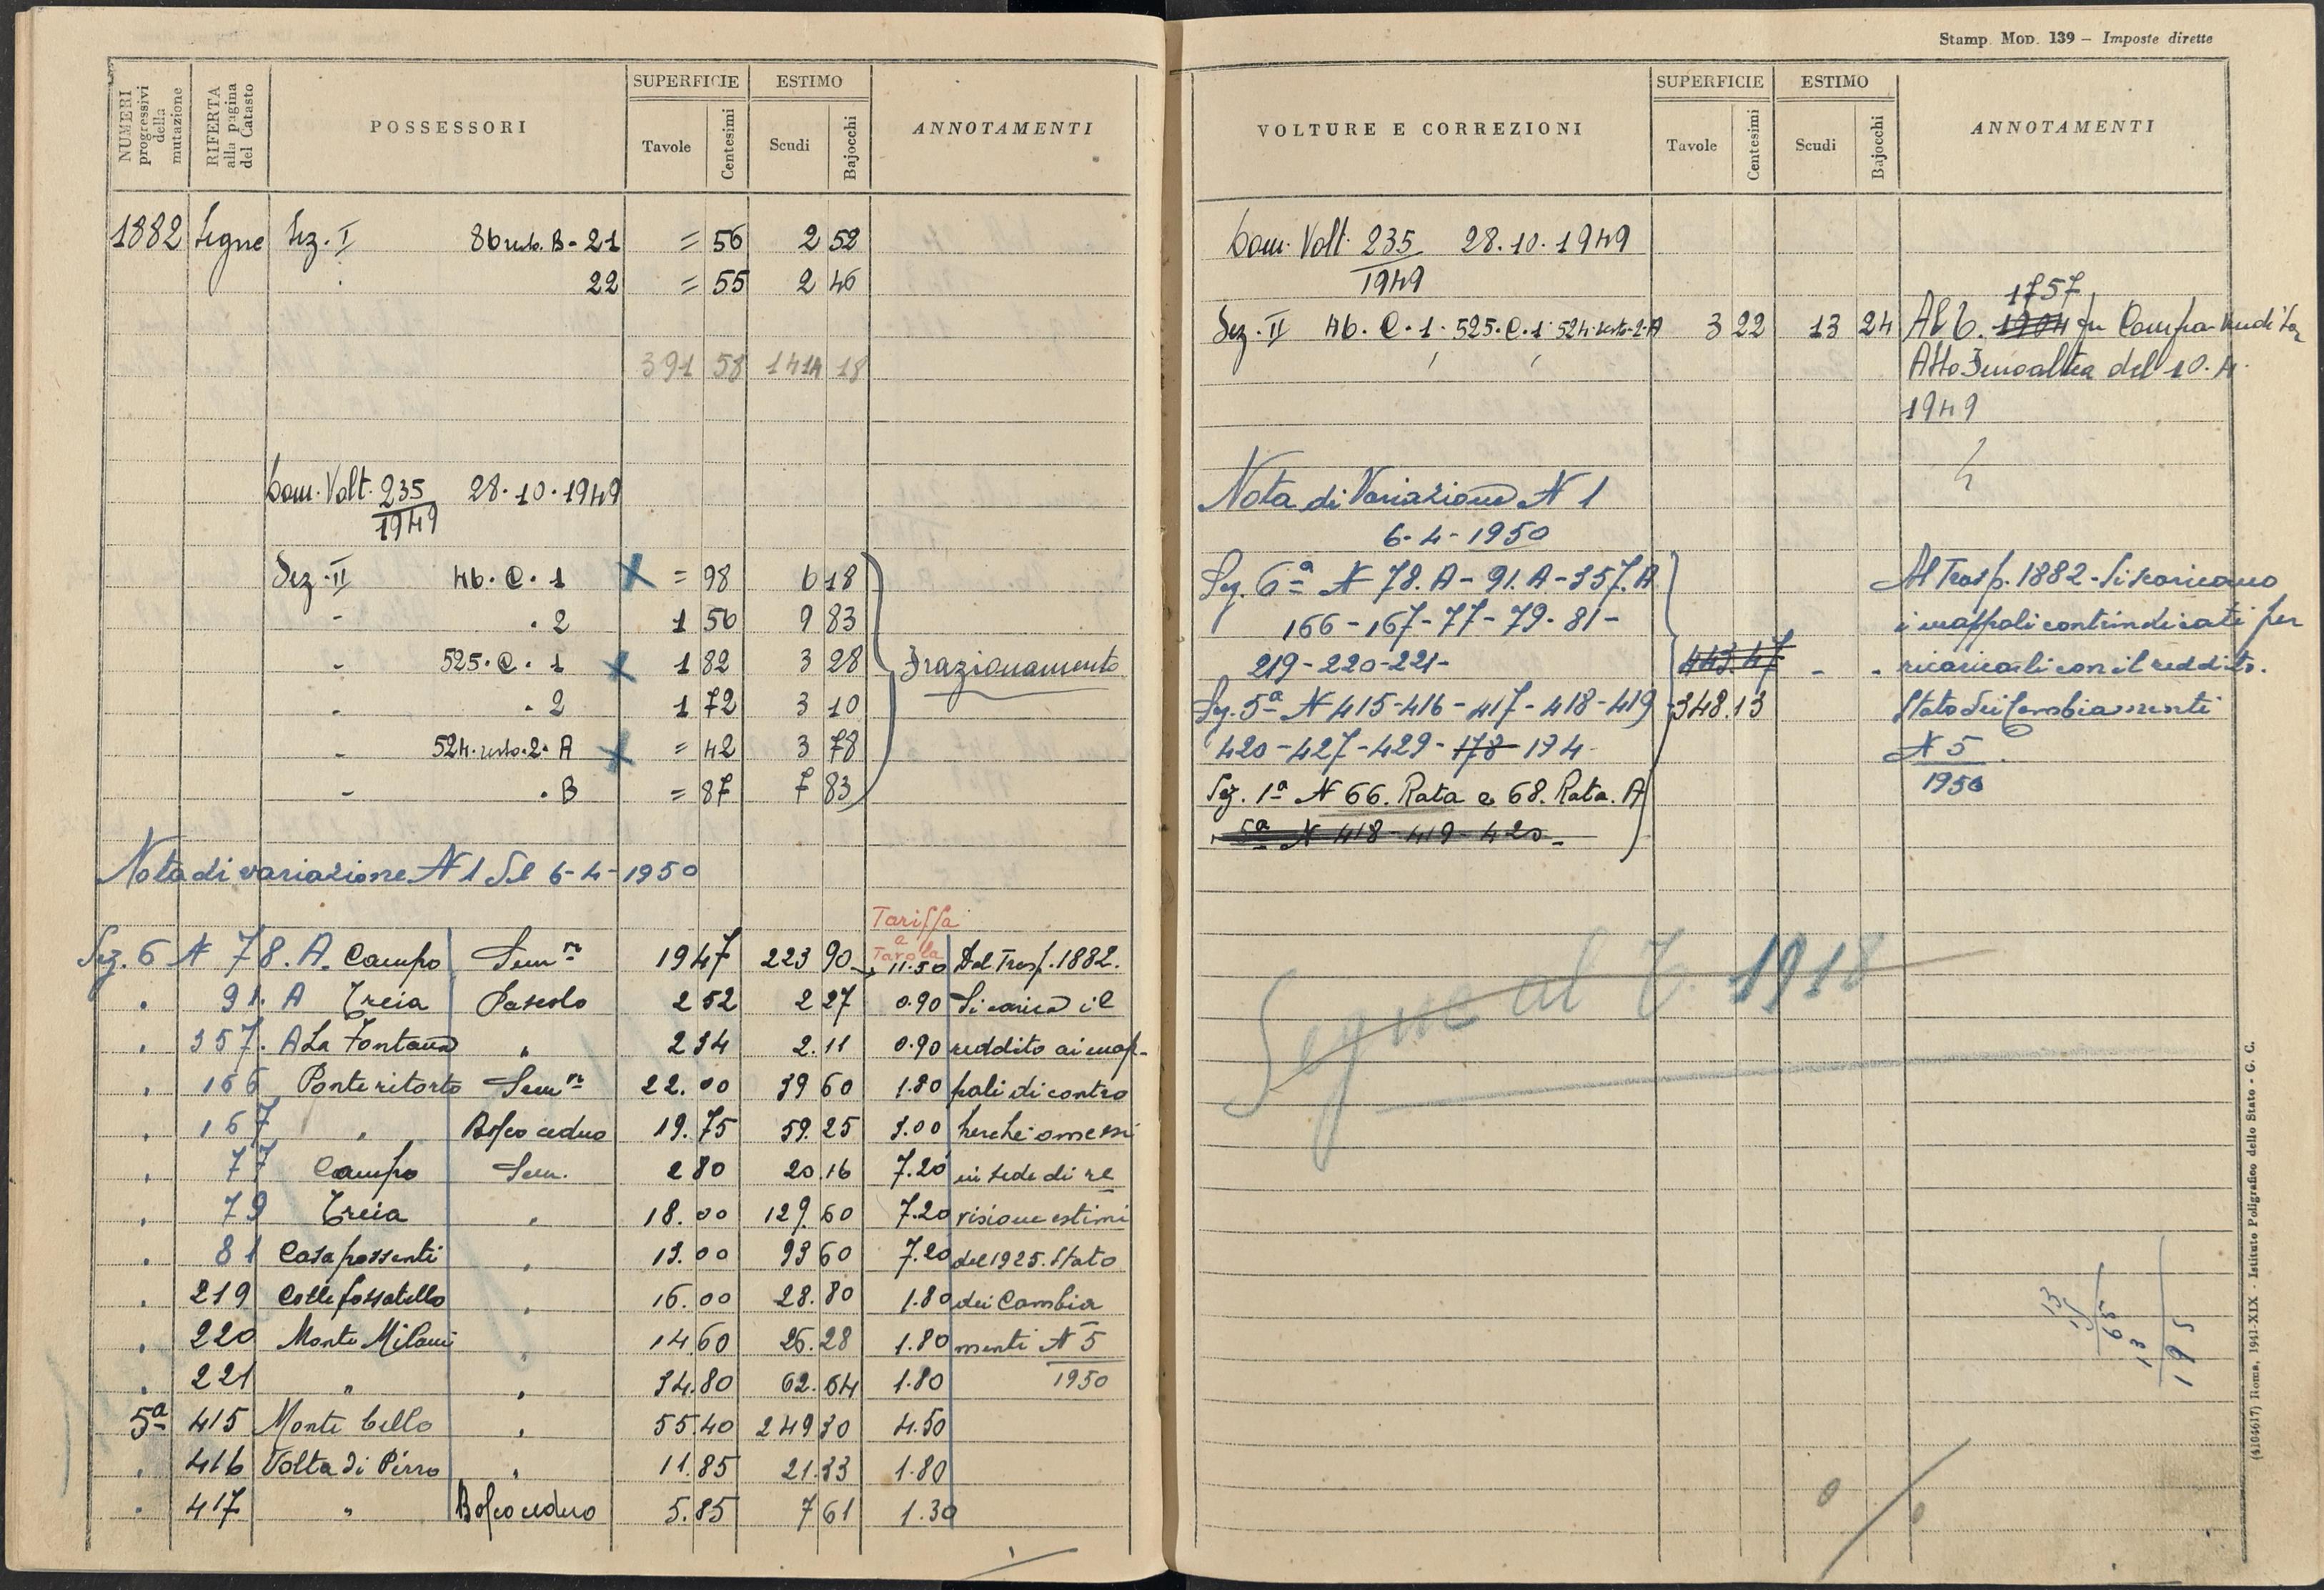 NUMERI progressivi della mutazione
RIFERTA alla pagina del Catasto
POSSESSORI
SUPERFICIE
Tavole
Centesimi
ESTIMO
Scudi
Bajocchi
ANNOTAMENTI
1882 Segue Sez. I 86 resto. B - 21 = 56 2 52
22 = 55 2 46
391 58 1414 18
Dom. Volt. 235/1949 28.10.1949
Sez. II 46. C. 1 X = 98 6 18
- . 2 1 56 9 83
- 525. C. 1 X 1 82 3 28 Frazionamento
- . 2 1 72 3 10
- 524. resto. 2. A X = 42 3 78
- . B = 87 7 83
Nota di variazione N 1 del 6-4-1950
Tariffa
a
Tavola
Sez. 6 N 78. A. Campo Semre 19 47 223 90 11.50 Del Trasp. 1882.
. 91. A Treia Pascolo 2 52 2 27 0.90 Si carica il
. 357. A La Fontana " 2 34 2.11 0.90 reddito ai map-
. 166 Ponte ritorto Semre 22.00 39 60 1.80 pali di contro
. 167 " Bosco ceduo 19.75 59.25 3.00 perché omessi
. 77 Campo Sem. 2 80 20.16 7.20 in sede di re
. 79 Treia " 18.00 129.60 7.20 visione estimi
. 81 Casa possenti " 13.00 93 60 7.20 del 1925. Stato
. 219 Colle fossatello " 16.00 28.80 1.80 dei Cambia
. 220 Monte Milani " 14 60 26.28 1.80 menti N 5
. 221 " " 34.80 62.64 1.80 1950
5ª 415 Monte bello " 55.40 249 30 4.50
. 416 Volta di Pirro " 11.85 21.33 1.80
. 417 " Bosco ceduo 5.85 7 61 1.30
Stamp. MOD. 139 – Imposte dirette
VOLTURE E CORREZIONI
SUPERFICIE
Tavole
Centesimi
ESTIMO
Scudi
Bajocchi
ANNOTAMENTI
Dom. Volt. 235/1949 28.10.1949
1757
Sez. II 46. C. 1. 525. C. 1. 524. resto. 2. A 3 22 13 24 Al 6. 1904 per Compra-vendita
Atto del 10.4.
1949
Nota di Variazione N 1
6-4-1950
Sez. 6ª N 78. A - 91. A - 357. A Al Trasp. 1882 - Si scaricano
166 - 167 - 77 - 79 - 81 - i mappali contrindicati per
219 - 220 - 221 - 443.47 - - ricaricarli con il reddito.
Sez. 5ª N 415 - 416 - 417 - 418 - 419 348.13 Stato dei Cambiamenti
420 - 427 - 429 - 178 - 194 N 5
1950
Sez. 1ª N 66. Rata e 68. Rata. A
5ª N 418 - 419 - 420 -
Segue al T. 1918
13
15
65
13
195
(4104617) Roma, 1941-XIX - Istituto Poligrafico dello Stato - G. C.